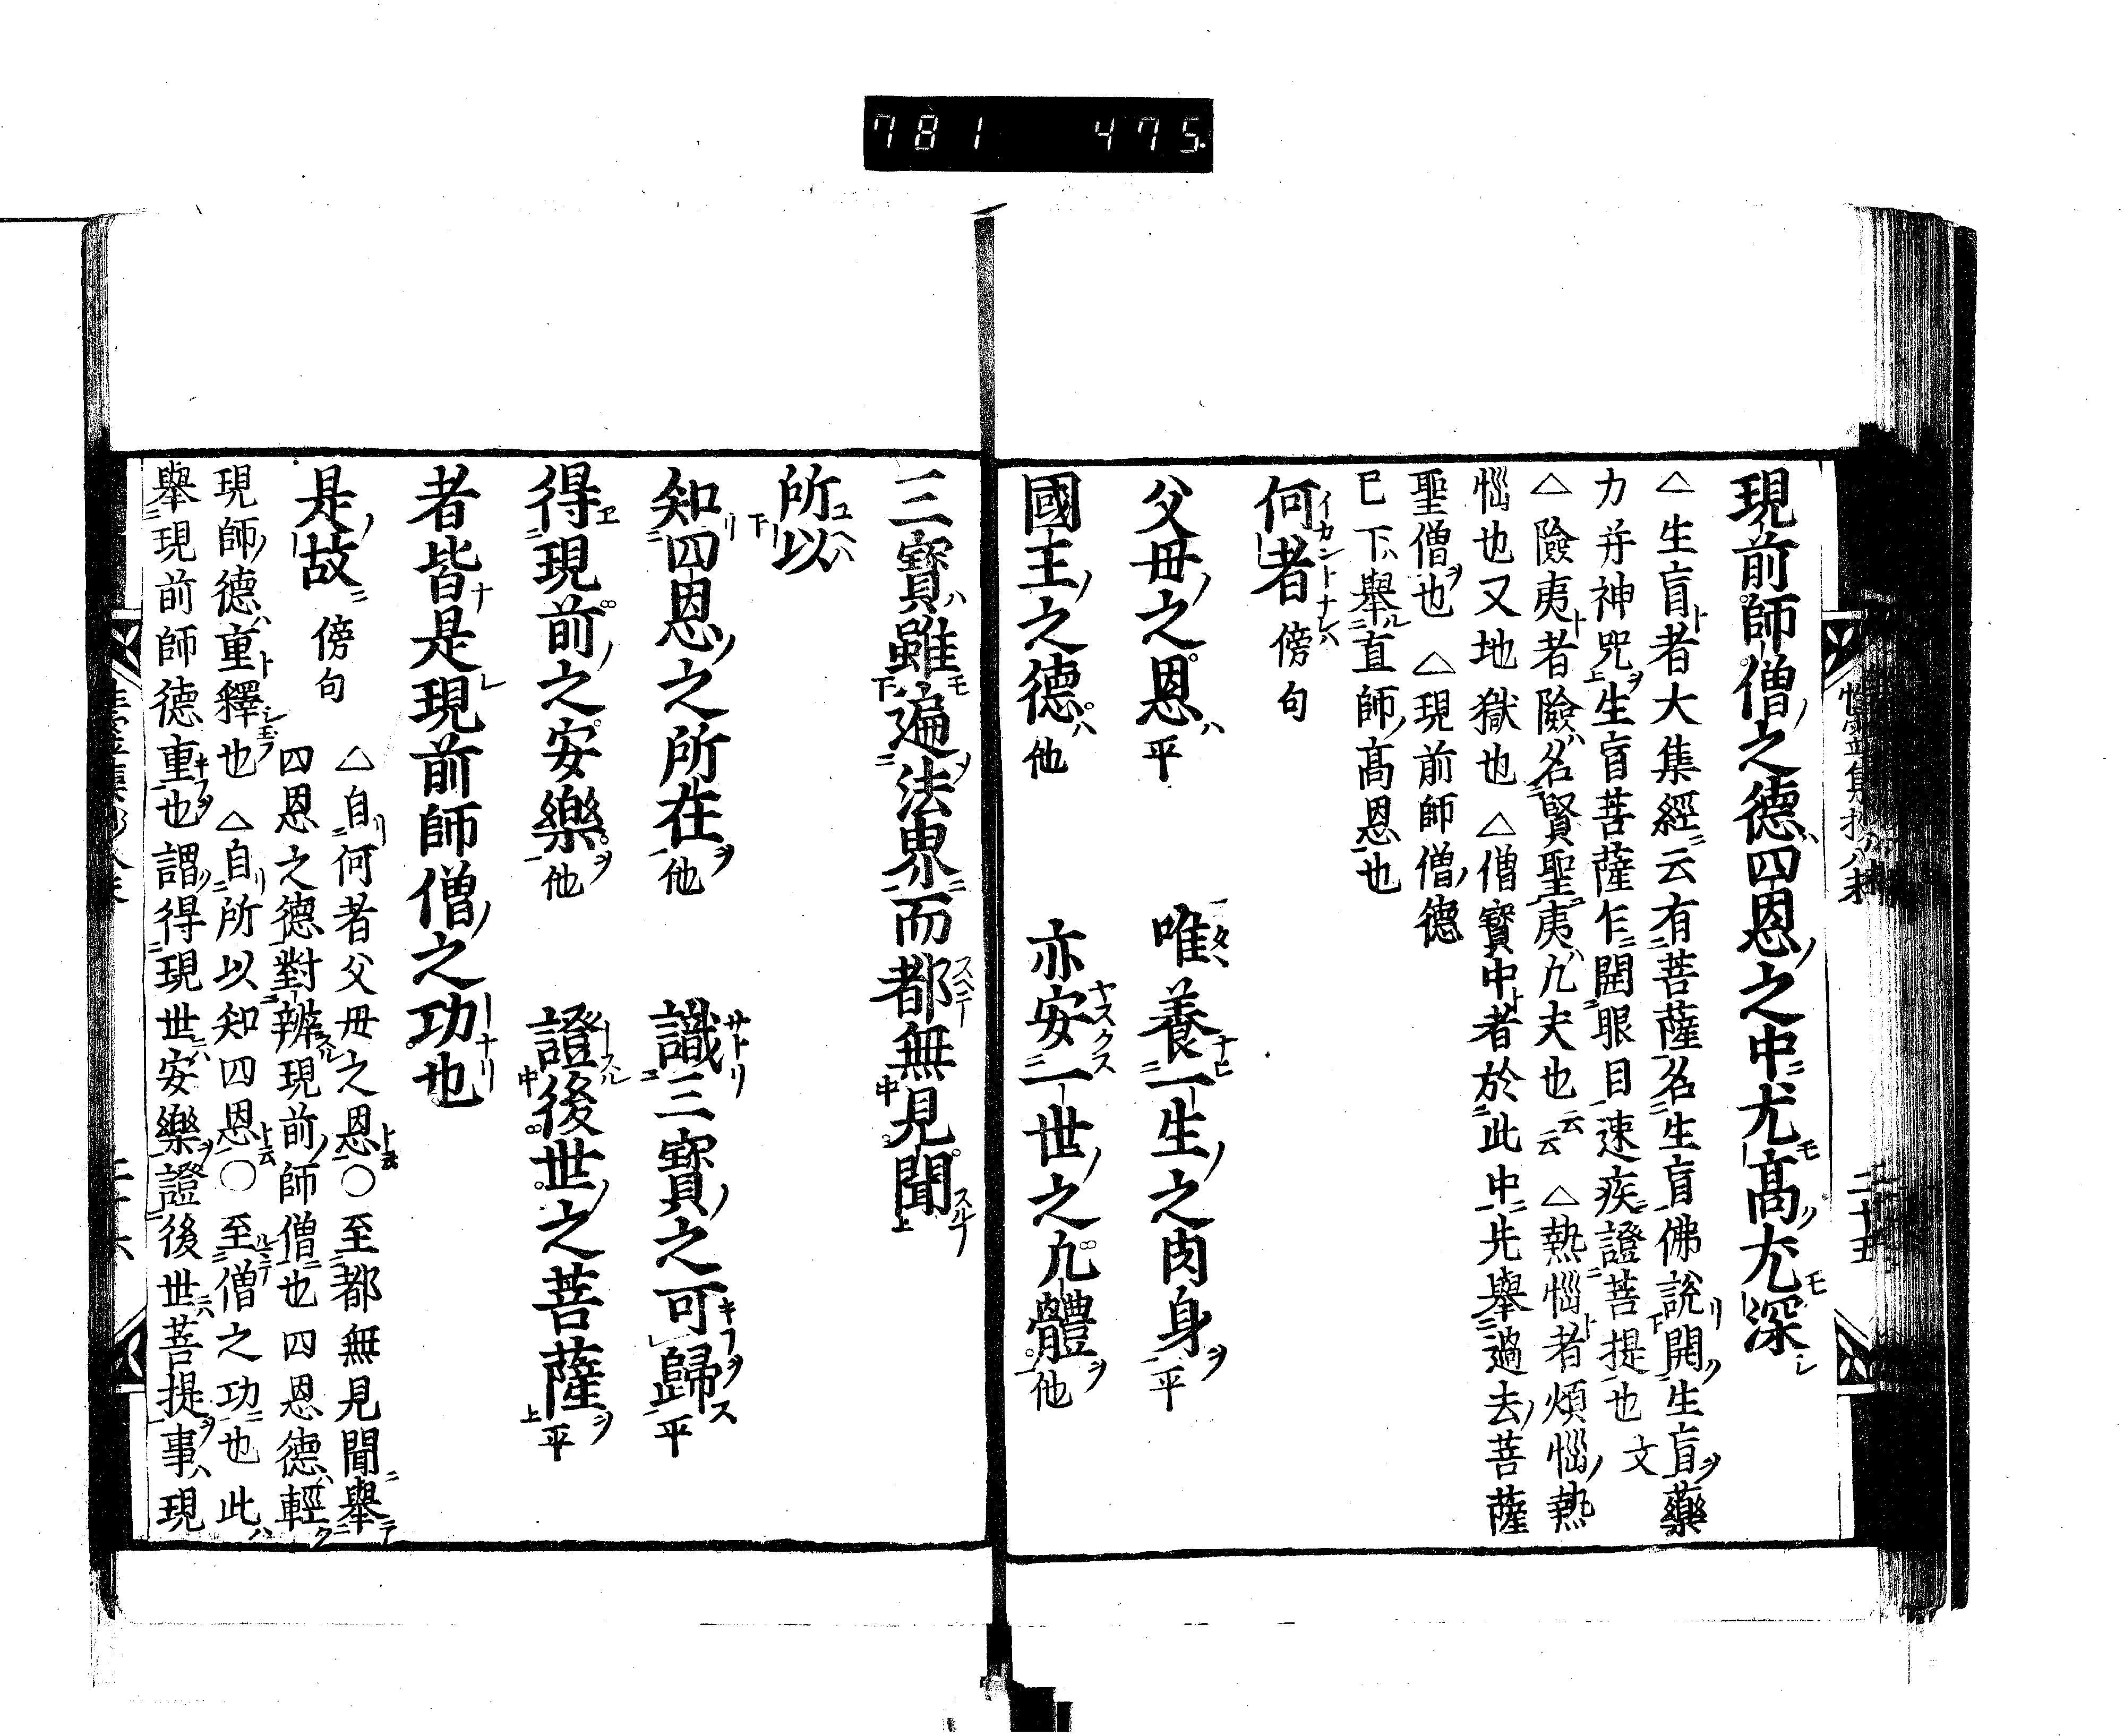 781 475.
現前師僧之德四恩之中尤高尤深
△生盲者大集經云有菩薩名生盲佛說開生盲藥
力并神咒生盲菩薩乍開眼目速疾證菩提也文
△險夷者險名賢聖夷凢夫也云云 △熱惱者煩惱熱
惱也又地獄也 △僧寶中者於此中先舉過去菩薩
聖僧也 △現前師僧德
已下舉直師高恩也
何者傍句
父母之恩平 唯養一生之肉身平
國王之德他 亦安一世之凢體他
三寶雖遍法界而都無見聞
所以
知四恩之所在他 識三寶之可歸平
得現前之安樂他 證後世之菩薩平
者皆是現前師僧之功也
是故傍句 △自何者父母之恩○至都無見聞舉
四恩之德對辨現前師僧也四恩德輕
現師德重釋也 △自所以知四恩○至僧之功也此
舉現前師德重也謂得現世安樂證後世菩提事現